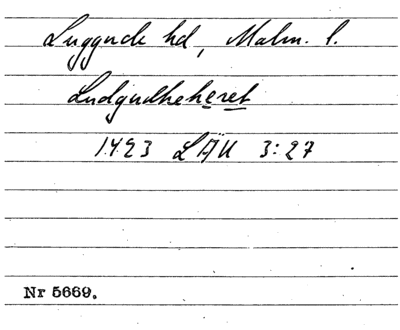 Luggude hd, Malm. l.
Ludgudheheret
1423 LÄU 3:27
Nr 5669.